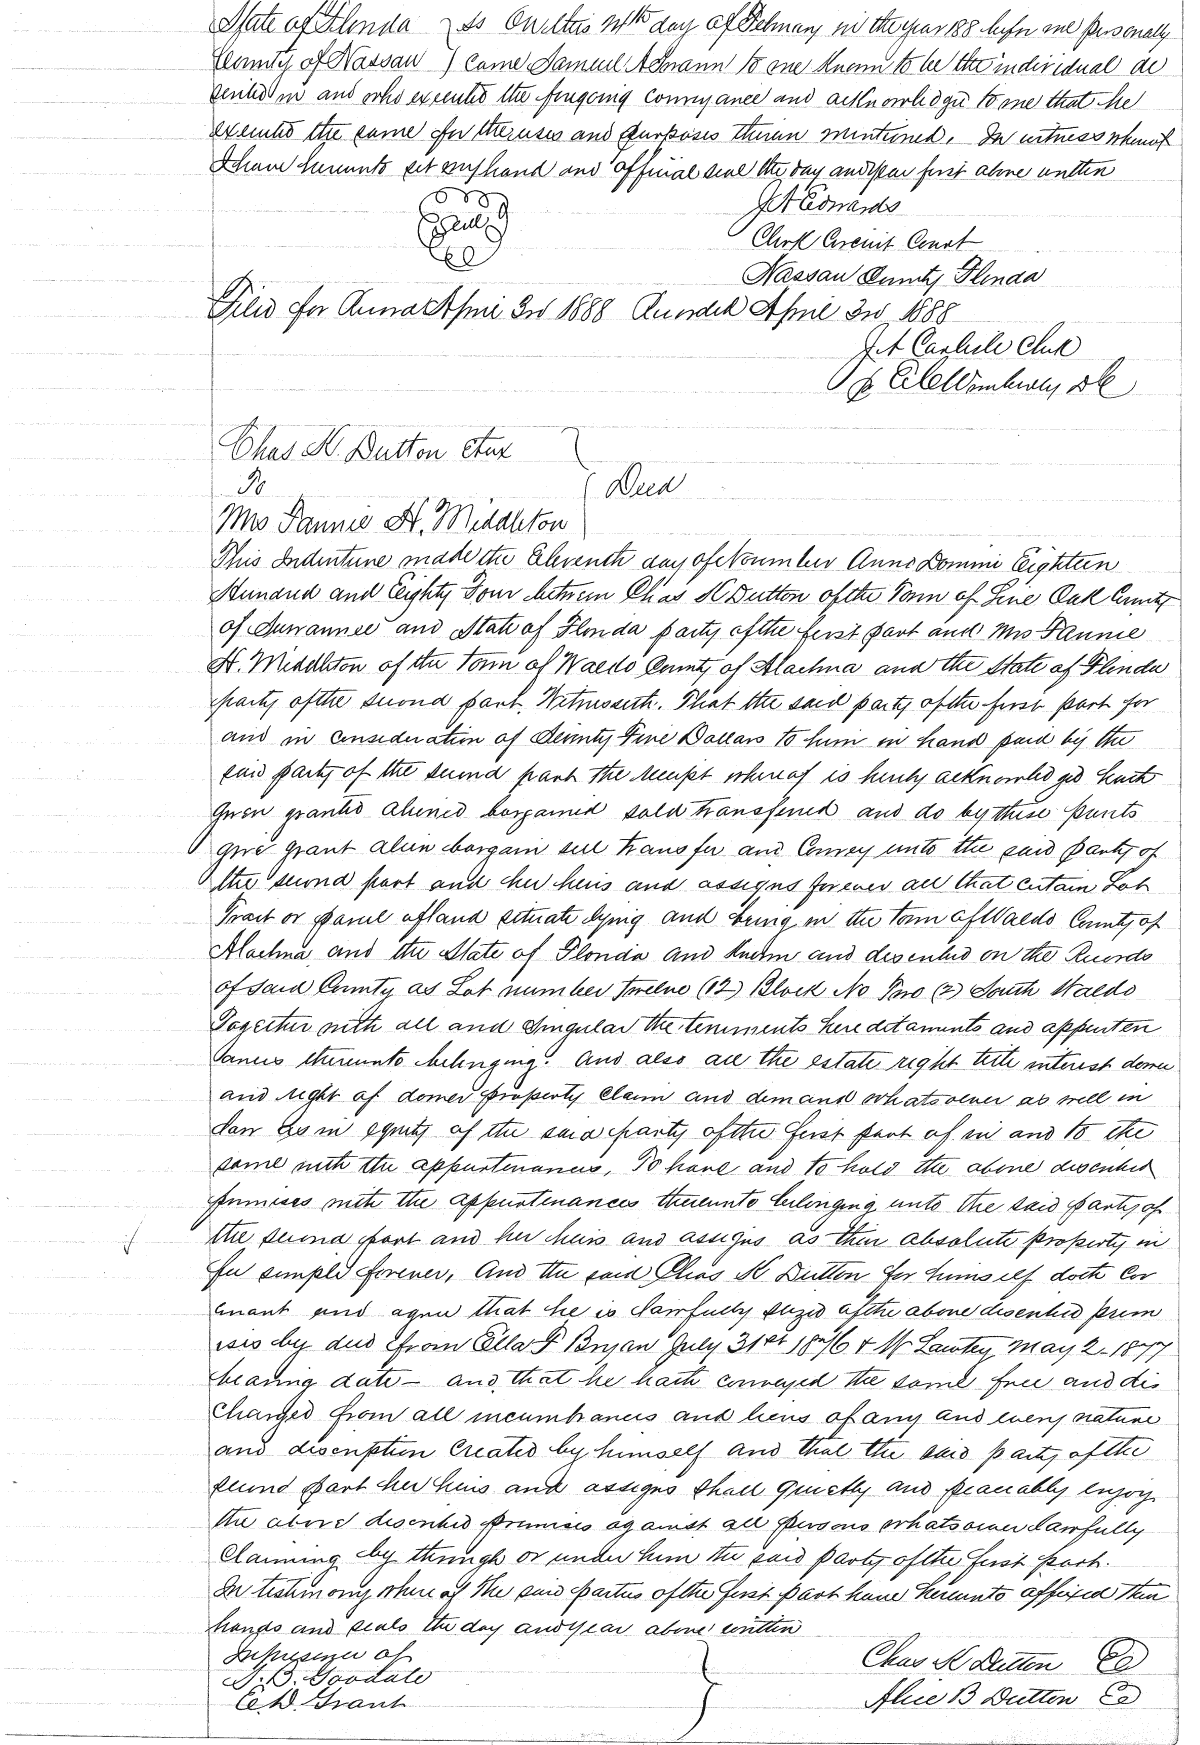 State of Florida } ss On this 14th day of February in the year 188 before me personally
County of Nassau } Came Samuel A Swann to me known to be the individual de
scribed in and who executed the foregoing conveyance and acknowledged to me that he
executed the same for the uses and purposes therein mentioned. In witness whereof
I have hereunto set my hand and official seal the day and year first above written
Seal
J A Edwards
Clerk Circuit Court
Nassau County Florida
Filed for April 3rd 1888 Recorded April 3rd 1888
J. A Carlisle Clerk
DC
Chas K. Dutton etux
To } Deed
Mrs Fannie H. Middleton
This Indenture made the Eleventh day of November Anno Domini Eighteen
Hundred and Eighty Four between Chas K Dutton of the Town of Live Oak County
of Suwannee and State of Florida party of the first part and Mrs Fannie
H. Middleton of the Town of Waldo County of Alachua and the State of Florida
party of the second part. Witnesseth. That the said party of the first part for
and in consideration of Seventy Five Dollars to him in hand paid by the
said party of the second part the receipt whereof is hereby acknowledged hath
given granted aliened bargained sold transferred and do by these presents
give grant alien bargain sell transfer and Convey unto the said party of
the second part and her heirs and assigns forever all that certain Lot
Tract or parcel of land situate lying and being in the Town of Waldo County of
Alachua and the State of Florida and known and described on the Records
of said County as Lot number Twelve (12) Block No Two (2) South Waldo
Together with all and Singular the tenements hereditaments and appurten
ances thereunto belonging. And also all the estate right title interest dower
and right of dower property Claim and demand whatsoever as well in
Law as in equity of the said party of the first part of in and to the
same with the appurtenances, To have and to hold the above described
premises with the appurtenances thereunto belonging unto the said party of
the second part and her heirs and assigns as their absolute property in
fee simple forever, And the said Chas K Dutton for himself doth Cov
enant and agree that he is lawfully siezed of the above described prem
ises by deed from Ella F Bryan July 31st 1876 & W Lawtey May 2 - 1877
bearing date - and that he hath conveyed the same free and dis
charged from all incumbrances and liens of any and every nature
and discription Created by himself and that the said party of the
second part her heirs and assigns shall quietly and peaceably enjoy
the above described premises against all persons whatsoever lawfully
Claiming by through or under him the said party of the first part.
In testimony whereof the said parties of the first part have hereunto affixed their
hands and seals the day and year above written
In presence of
T. B. Goodale
E. D. Grant
Chas K Dutton
Alice B Dutton